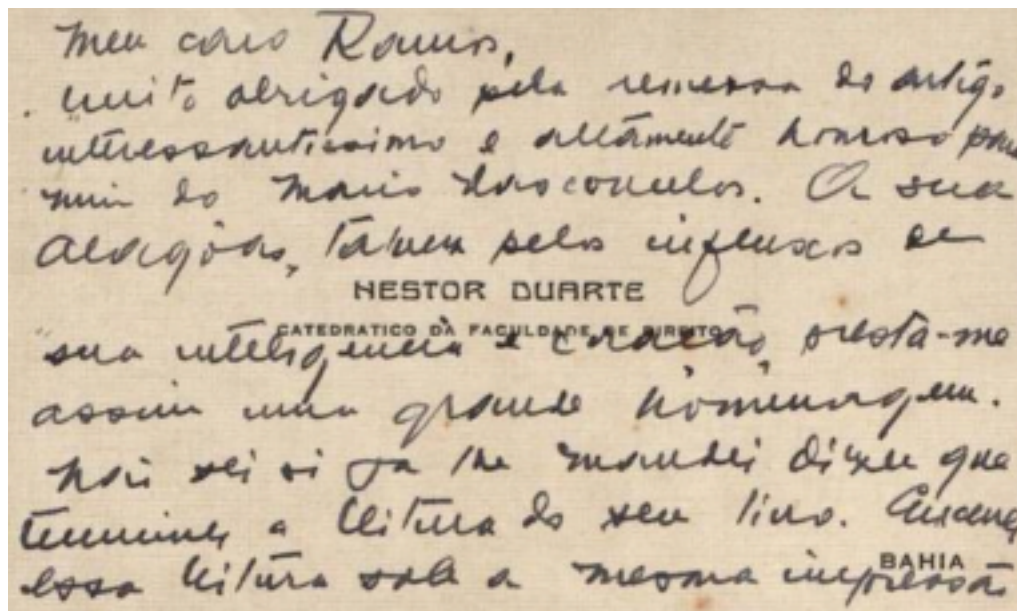 Meu caro Ramos,
muito obrigado pela remessa do artigo
interessantissimo e altamente honroso para
mim do Mario Vasconcelos. A sua
Alagôas, talvez pelos influxos de
NESTOR DUARTE
CATEDRATICO DA FACULDADE DE DIREITO
sua inteligencia e coração, presta-me
assim uma grande homenagem.
Não sei si ja lhe mandei dizer que
terminei a leitura do seu livro.
BAHIA
essa leitura sob a mesma impressão